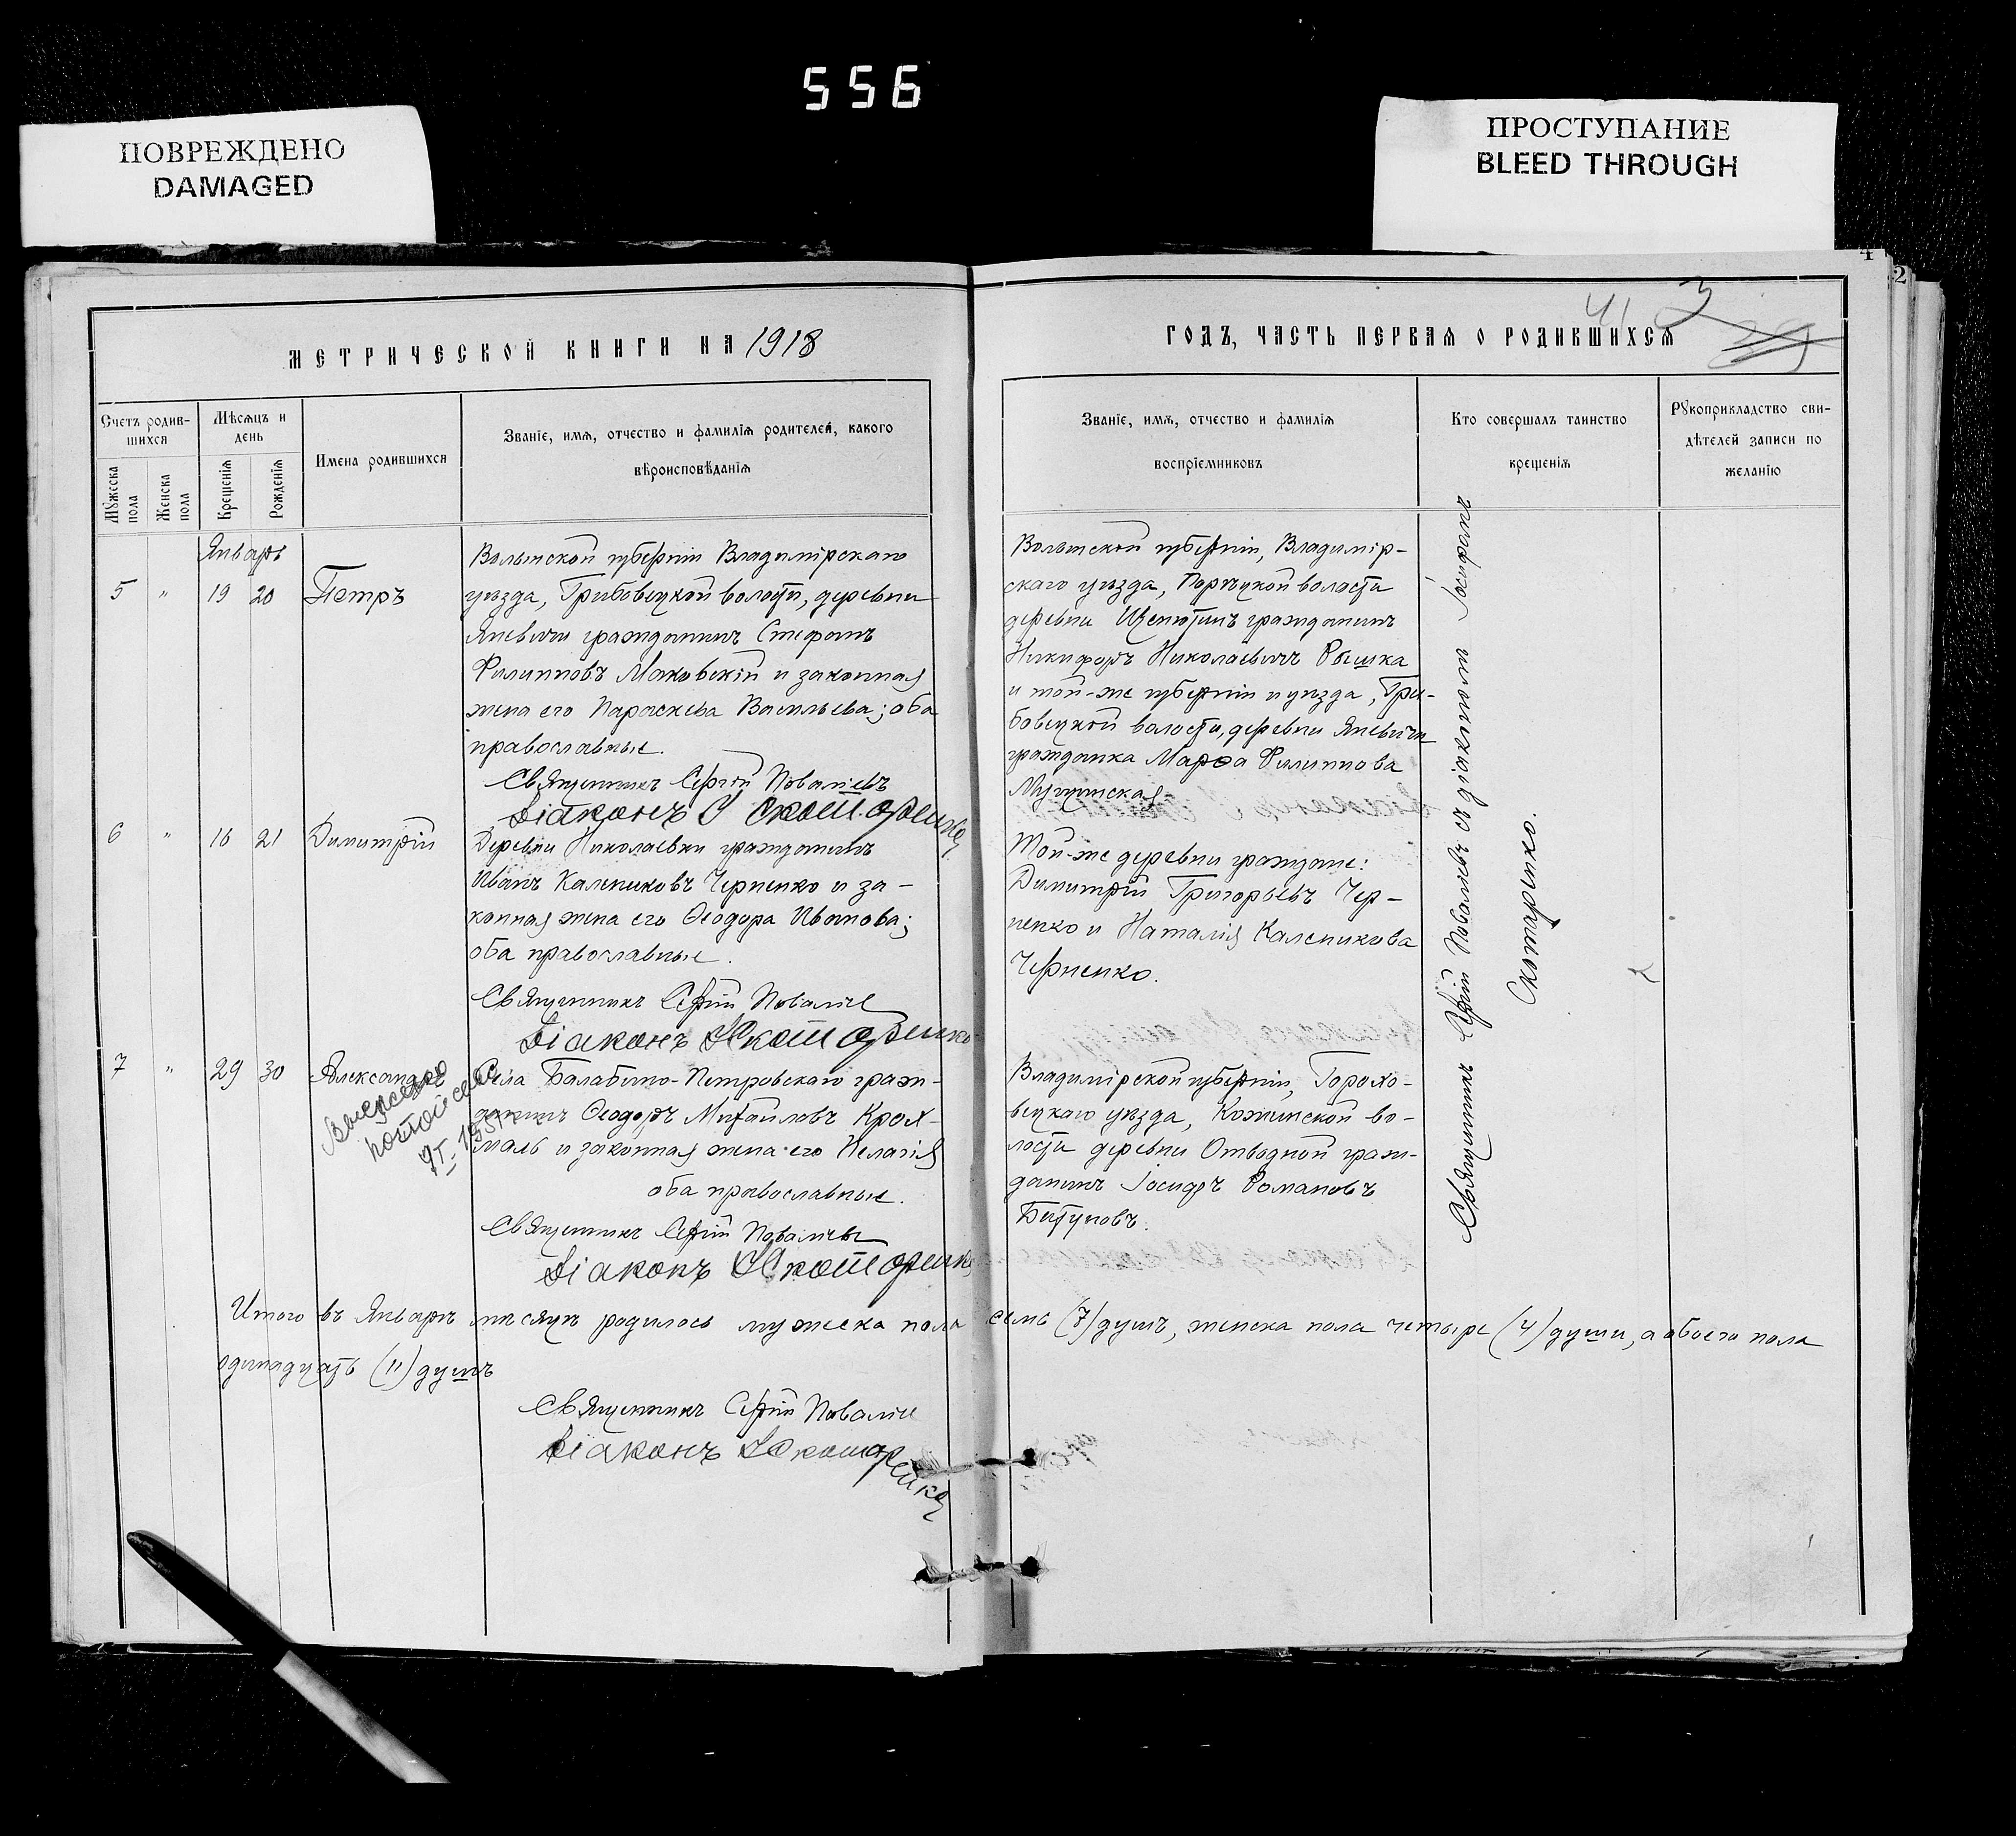 556
ПОВРЕЖДЕНО
DAMAGED
ПРОСТУПАНИЕ
BLEED THROUGH
МЕТРИЧЕСКОЙ КНИГИ НА 1918
Счетъ родив-
шихся
Мѣсяцъ и
день
Мужеска
пола
Женска
пола
Крещенія
Рожденія
Имена родившихся
Званіе, имя, отчество и фамилія родителей, какого
вѣроисповѣданія
Январь
5 " 19 20 Петръ
Волынской губерніи Владимірскаго
уѣзда, Грибовецкой волости, деревни
Яневичи гражданинъ Стефанъ
Филипповъ Маковскій и законная
жена его Параскева Васильева; оба
православные.
Священникъ Сергій Поваліевъ
Діаконъ І Скотаренко
6 " 16 21 Димитрій
Деревни Николаевки гражданинъ
Иванъ Калениковъ Черненко и за-
конная жена его Ѳеодора Иванова;
оба православные.
Священникъ Сергій Поваліе
Діаконъ І Скотаренко
7 " 29 30 Александръ
Села Балабино-Петровскаго граж-
данинъ Ѳеодоръ Михаиловъ Крох-
маль и законная жена его Пелагія
оба православные.
Священникъ Сергій Поваліевъ
Діаконъ І Скотаренко
Итого въ Январѣ мѣсяцѣ родилось мужеска пола семь (7) душъ, женска пола четыре (4) души, а обоего пола
одинадцать (11) душъ
Священникъ Сергій Поваліе
Діаконъ І Скотаренко
4
2
41 3
39
ГОДЪ, ЧАСТЬ ПЕРВАЯ О РОДИВШИХСЯ
Званіе, имя, отчество и фамилія
воспріемниковъ
Кто совершалъ таинство
крещенія
Рукоприкладство сви-
дѣтелей записи по
желанію
Волынской губерніи, Владимір-
скаго уѣзда, Порыцкой волости
деревни Щенютинъ гражданинъ
Никифоръ Николаевичъ Рышка
и той-же губерніи и уѣзда, Гри-
бовецкой волости, деревни Яневичи
гражданка Марѳа Филиппова
Той-же деревни граждане:
Димитрій Григорьевъ Чер-
ненко и Наталія Каленикова
Черненко.
Владимірской губерніи, Горохо-
вецкаго уѣзда, Кожинской во-
лости деревни Отводной граж-
данинъ Іосифъ Романовъ
Священникъ Сергій Поваліевъ съ діакономъ Іосифомъ
Скотаренко.